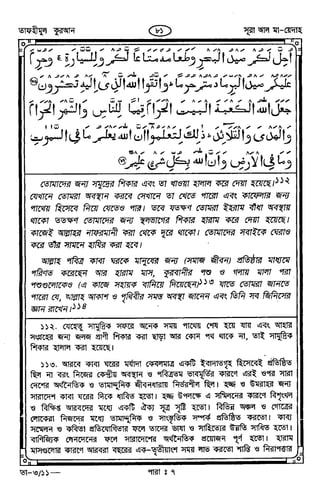 তাফহীমুল কুরআন
৮১
সূরা আল মা-য়েদাহ
أُحِلَّ لَكُمْ صَيْدُ الْبَحْرِ وَطَعَامُهُ مَتَاعًا لَّكُمْ وَلِلسَّيَّارَةِ ۚ وَحُرِّمَ
عَلَيْكُمْ صَيْدُ الْبَرِّ مَا دُمْتُمْ حُرُمًا ۗ وَاتَّقُوا اللَّهَ الَّذِي إِلَيْهِ تُحْشَرُونَ ۝
جَعَلَ اللَّهُ الْكَعْبَةَ الْبَيْتَ الْحَرَامَ قِيَامًا لِّلنَّاسِ وَالشَّهْرَ الْحَرَامَ
وَالْهَدْيَ وَالْقَلَائِدَ ۚ ذَٰلِكَ لِتَعْلَمُوا أَنَّ اللَّهَ يَعْلَمُ مَا فِي السَّمَاوَاتِ
وَمَا فِي الْأَرْضِ وَأَنَّ اللَّهَ بِكُلِّ شَيْءٍ عَلِيمٌ ۝
তোমাদের জন্য সমুদ্রের শিকার এবং তা খাওয়া হালাল করে দেয়া হয়েছে।১১২
যেখানে তোমরা অবস্থান করবে সেখানে তা খেতে পারো এবং কাফেলার জন্য
পাথেয় হিসেবে নিয়ে যেতেও পার। তবে যতক্ষণ তোমরা ইহরাম বাঁধা অবস্থায়
থাকো ততক্ষণ তোমাদের জন্য স্থলভাগের শিকার হারাম করে দেয়া হয়েছে।
কাজেই আল্লাহর নাফরমানী করা থেকে দূরে থাকো। তোমাদের সবাইকে ঘেরাও
করে তাঁর সামনে হাযির করা হবে।
আল্লাহ পবিত্র কাবা ঘরকে মানুষের জন্য (সমাজ জীবন) প্রতিষ্ঠার মাধ্যমে
পরিণত করেছেন আর হারাম মাস, কুরবানীর পশু ও গলায় মালা পরা
পশুগুলোকেও (এ কাজে সহায়ক বানিয়ে দিয়েছেন)১১৩ যাতে তোমরা জানতে
পারো যে, আল্লাহ আকাশ ও পৃথিবীর সমস্ত অবস্থা জানেন এবং তিনি সব জিনিসের
জ্ঞান রাখেন।১১৪
১১২. যেহেতু সামুদ্রিক সফরে অনেক সময় পাথেয় শেষ হয়ে যায় এবং আহার
সংগ্রহের জন্য জলজ প্রাণী শিকার করা ছাড়া আর কোন পথ থাকে না, তাই সামুদ্রিক
শিকার হালাল করা হয়েছে।
১১৩. আরবে কাবা ঘরের মর্যাদা কেবলমাত্র একটি ইবাদাতগৃহ হিসেবেই প্রতিষ্ঠিত
ছিল না বরং নিজের কেন্দ্রীয় অবস্থান ও পবিত্রতম ভাবমূর্তির কারণে এরই ওপর সারা
দেশের অর্থনৈতিক ও তামাদ্দুনিক জীবনধারার নির্ভরশীল ছিল। হজ্জ ও উমরাহর জন্য
সারাদেশ কাবা ঘরের দিকে ধাবিত হতো। হজ্জ উপলক্ষে এ সম্মিলনের কারণে বিশৃংখল
ও বিচ্ছিন্ন আরবদের মধ্যে একটি ঐক্য সূত্র সৃষ্টি হতো। বিভিন্ন অঞ্চল ও গোত্রের
লোকেরা নিজেদের মধ্যে তামাদ্দুনিক ও সাংস্কৃতিক সম্পর্ক প্রতিষ্ঠিত করতো। কাব্য
সম্মেলন ও কবিতা প্রতিযোগিতার ফলে তাদের ভাষা ও সাহিত্যের উন্নতি সাধিত হতো।
বাণিজ্যিক লেনদেনের ফলে সারাদেশের অর্থনৈতিক প্রয়োজন পূর্ণ হতো। হারাম
মাসগুলোর কারণে আরবরা বছরের এক-তৃতীয়াংশ সময় লাভ করতো শান্তি ও নিরাপত্তার
তা-৩/১১—
পারা : ৭